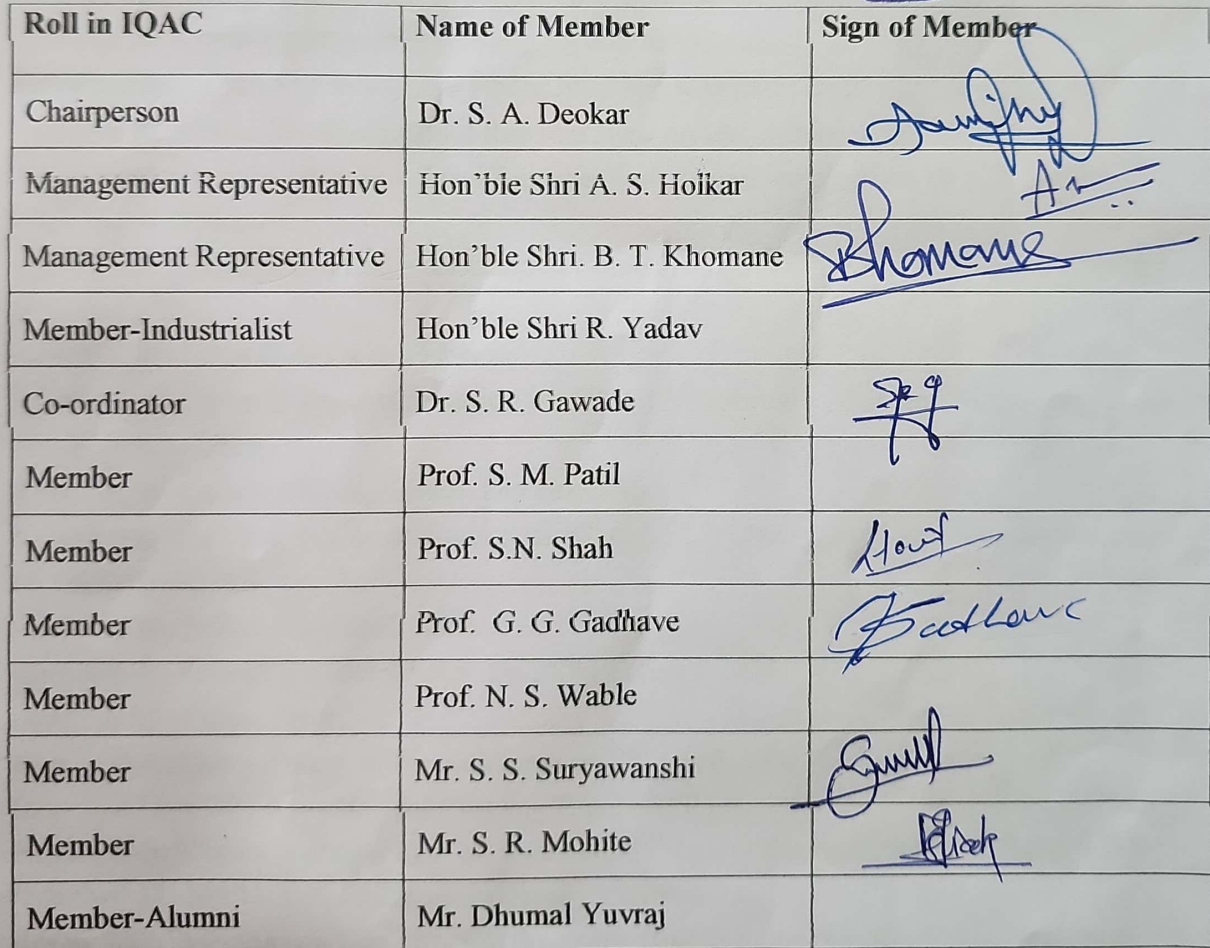 Roll in IQAC Name of Member Sign of Member
Chairperson Dr. S. A. Deokar
Management Representative Hon'ble Shri A. S. Holkar
Management Representative Hon'ble Shri. B. T. Khomane Bkhomane
Member-Industrialist Hon'ble Shri R. Yadav
Co-ordinator Dr. S. R. Gawade
Member Prof. S. M. Patil
Member Prof. S.N. Shah
Member Prof. G. G. Gadhave
Member Prof. N. S. Wable
Member Mr. S. S. Suryawanshi
Member Mr. S. R. Mohite
Member-Alumni Mr. Dhumal Yuvraj